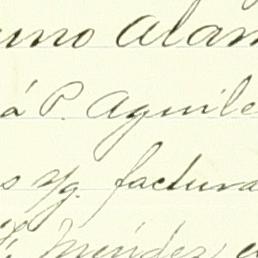 uno Alam
á P. Aguile
s s/g. factura
Méndez, c